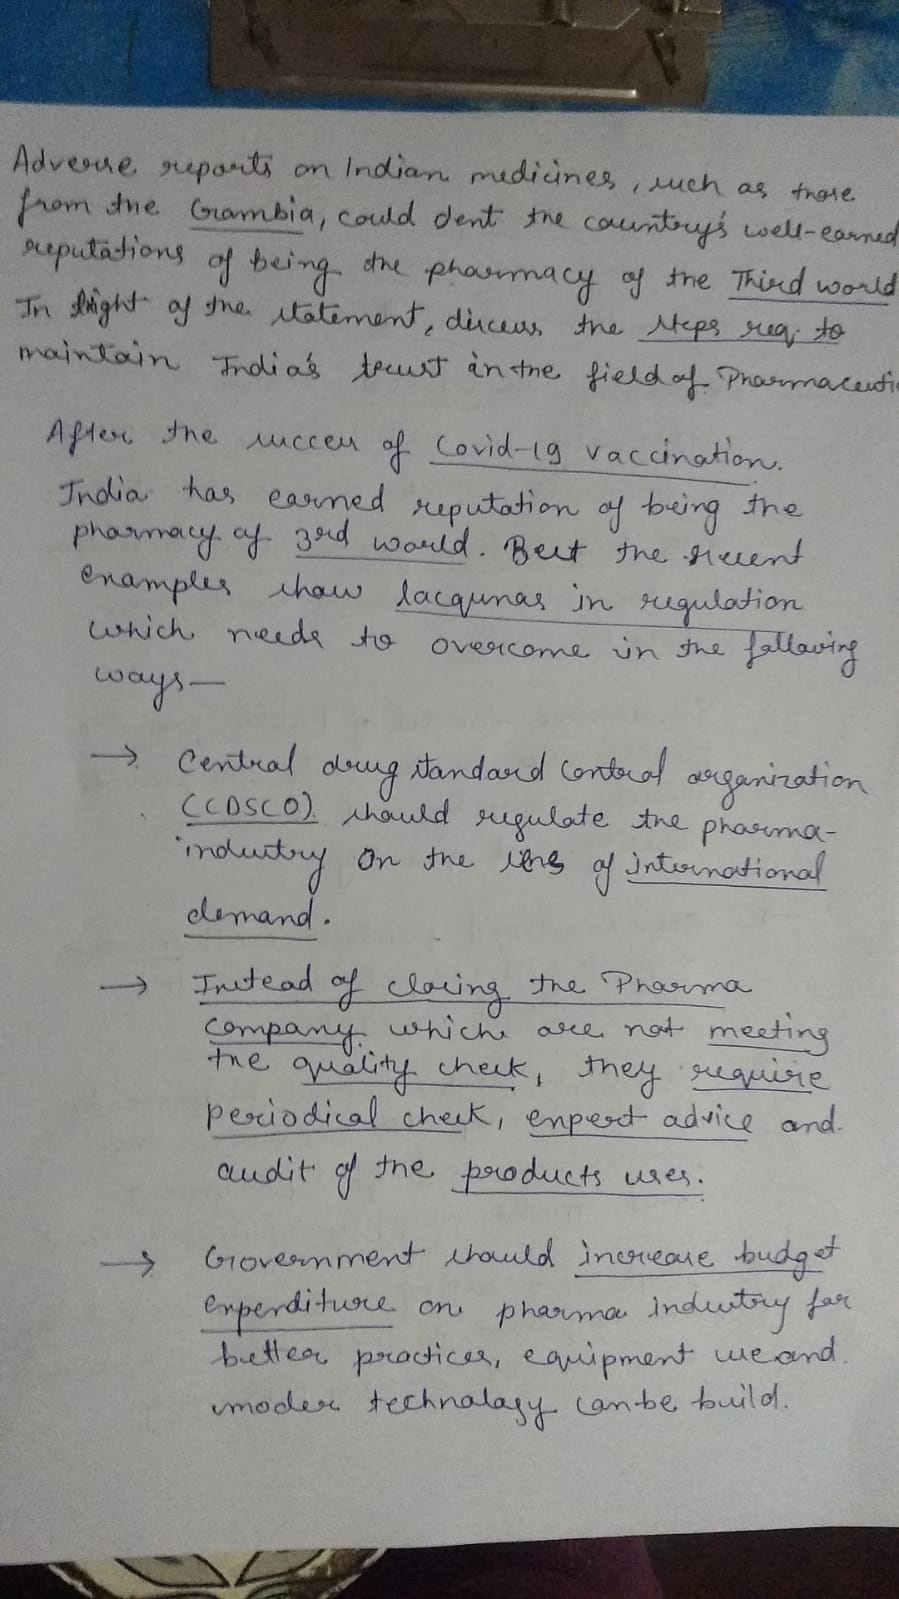 Adverse reports on Indian medicines, such as those
from the Gambia, could dent the country's well-earned
reputations of being the pharmacy of the Third world
In light of the statement, discuss the steps req. to
maintain India's trust in the field of Pharmaceuti
After the success of Covid-19 vaccination.
India has earned reputation of being the
pharmacy of 3rd world. But the recent
examples show lacqunas in regulation
which needs to overcome in the following
ways—
→ Central drug standard control organization
(CDSCO) should regulate the pharma-
industry on the lens of international
demand.
→ Instead of closing the Pharma
company which are not meeting
the quality check, they require
periodical check, expert advice and
audit of the products uses.
→ Government should increase budget
expenditure on pharma industry for
better practices, equipment use and
moder technology can be build.